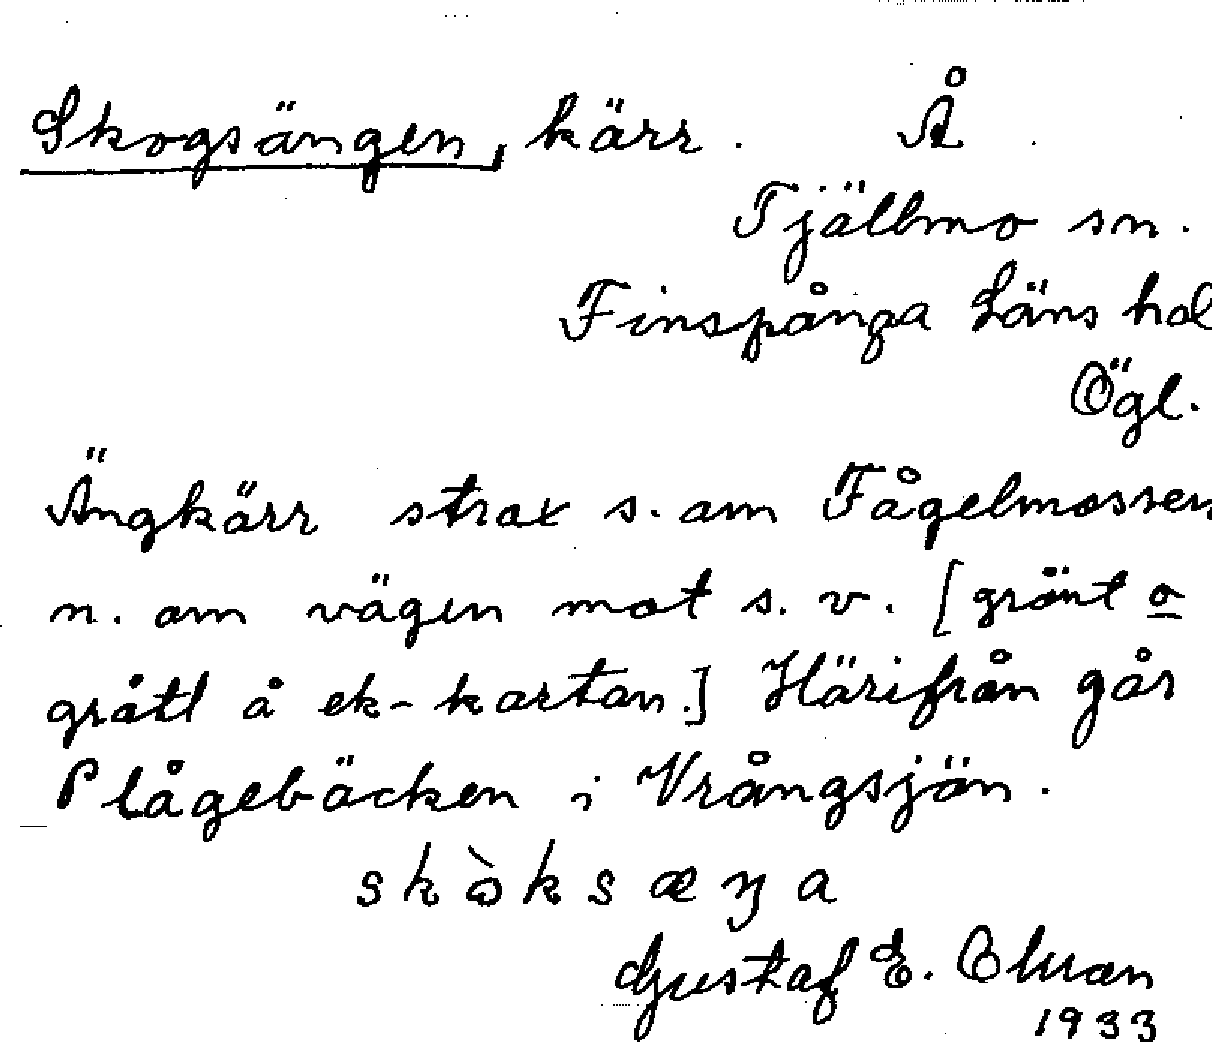 Skogsängen, kärr. Å
Tjällmo sn.
Finspånga Läns hd
Ögl.
Ängkärr strax s. om Fågelmossen
n. om vägen mot s. v. [grönt o
grått å ek-kartan.] Härifrån går
Plågebäcken i Vrångsjön.
Gustaf E.
1933